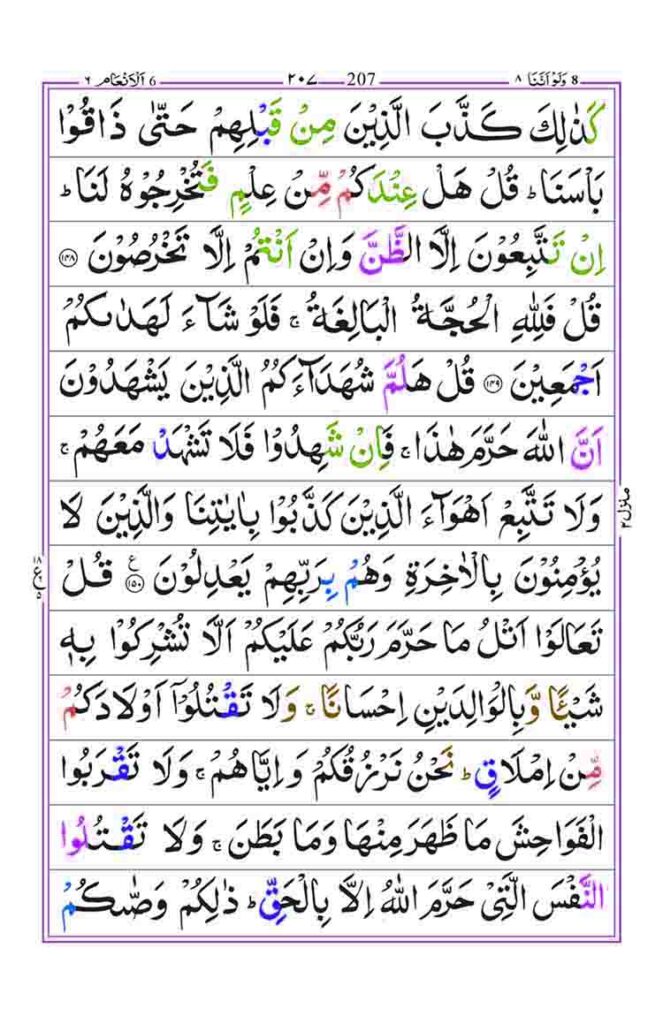 ٨ وَلَوْ اَنَّنَا 8 207 ٢٠٧ 6 اَلْاَنْعَام ٦
كَذٰلِكَ كَذَّبَ الَّذِيْنَ مِنْ قَبْلِهِمْ حَتّٰى ذَاقُوْا
بَاْسَنَا ؕ قُلْ هَلْ عِنْدَكُمْ مِّنْ عِلْمٍ فَتُخْرِجُوْهُ لَنَا ؕ
اِنْ تَتَّبِعُوْنَ اِلَّا الظَّنَّ وَاِنْ اَنْتُمْ اِلَّا تَخْرُصُوْنَ ﴿١٤٨﴾
قُلْ فَلِلّٰهِ الْحُجَّةُ الْبَالِغَةُ ۚ فَلَوْ شَآءَ لَهَدٰىكُمْ
اَجْمَعِيْنَ ﴿١٤٩﴾ قُلْ هَلُمَّ شُهَدَآءَكُمُ الَّذِيْنَ يَشْهَدُوْنَ
اَنَّ اللّٰهَ حَرَّمَ هٰذَا ۚ فَاِنْ شَهِدُوْا فَلَا تَشْهَدْ مَعَهُمْ ۚ
وَلَا تَتَّبِعْ اَهْوَآءَ الَّذِيْنَ كَذَّبُوْا بِاٰيٰتِنَا وَالَّذِيْنَ لَا
يُؤْمِنُوْنَ بِالْاٰخِرَةِ وَهُمْ بِرَبِّهِمْ يَعْدِلُوْنَ ﴿١٥٠﴾ ع قُلْ
تَعَالَوْا اَتْلُ مَا حَرَّمَ رَبُّكُمْ عَلَيْكُمْ اَلَّا تُشْرِكُوْا بِهٖ
شَيْـًٔا وَّبِالْوَالِدَيْنِ اِحْسَانًا ۚ وَلَا تَقْتُلُوْۤا اَوْلَادَكُمْ
مِّنْ اِمْلَاقٍ ؕ نَحْنُ نَرْزُقُكُمْ وَاِيَّاهُمْ ۚ وَلَا تَقْرَبُوا
الْفَوَاحِشَ مَا ظَهَرَ مِنْهَا وَمَا بَطَنَ ۚ وَلَا تَقْتُلُوا
النَّفْسَ الَّتِيْ حَرَّمَ اللّٰهُ اِلَّا بِالْحَقِّ ؕ ذٰلِكُمْ وَصّٰىكُمْ
منزل ٢